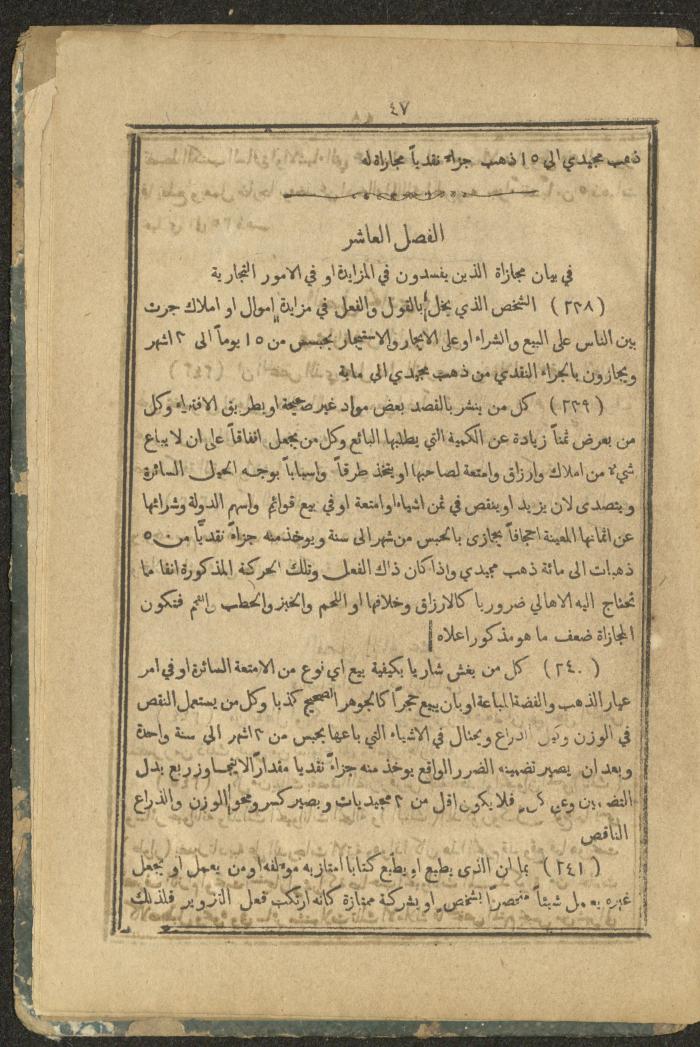 ٤٧
ذهب مجيدي الى ١٥ ذهب جزاء نقدياً مجازاة له
الفصل العاشر
في بيان مجازاة الذين يفسدون في المزايدة او في الامور التجارية
(٢٣٨) الشخص الذي يخل بالقول والفعل في مزايدة اموال او املاك جرت
بين الناس على البيع والشراء او على الايجار والاستيجار بحبس من ١٥ يوماً الى ٣ اشهر
ويجازون بالجزاء النقدي من ذهب مجيدي الى ماية
(٢٣٩) كل من ينشر بالقصد بعض مواد غير صحيحة او بطريق الافتراء وكل
من يعرض ثمناً زيادة عن الكمية التي يطلبها البائع وكل من يجعل اتفاقاً على ان لا يباع
شيء من املاك وارزاق وامتعة لصاحبها او يتخذ طرقاً واسباباً بوجه الحيل السائرة
ويتصدى لان يزيد او ينقص في ثمن اشياء او امتعة او في بيع قوائم واسهم الدولة وشرائها
عن اثمانها المعينة احجافاً يجازى بالحبس من شهر الى سنة ويوخذ منه جزاءً نقدياً من ٥٠٠
ذهبات الى مائة ذهب مجيدي واذا كان ذلك الفعل وتلك الحركة المذكورة انفا ما
تحتاج اليه الاهالي ضروريا كالارزاق وخلافها او اللحم والخبز والحطب والفحم فتكون
المجازاة ضعف ما هو مذكور اعلاه
(٢٤٠) كل من يغش شاريا بكيفية بيع اي نوع من الامتعة السائرة او في امر
عيار الذهب والفضة المباعة او بان يبيع حجرًا كالجوهر الصحيح كذبا وكل من يستعمل النقص
في الوزن وكيل الذراع ويحتال في الاشياء التي باعها يحبس من ٣ اشهر الى سنة واحدة
وبعد ان يصير تضمينه الضرر الواقع يوخذ منه جزاءً نقديا مقدارًا لا يتجاوز ربع بدل
التضمين وعلى كل فلا يكون اقل من ٣ مجيديات ويصير كسر ومحو الوزن والذراع
الناقص
(٢٤١) بما ان الذي يطبع او يطبع كتابا امتاز به مولفه او من يعمل او يجعل
غيره يعمل شيئاً منحصرًا بشخص او بشركة ممتازة كانه ارتكب فعل التزوير فلذلك